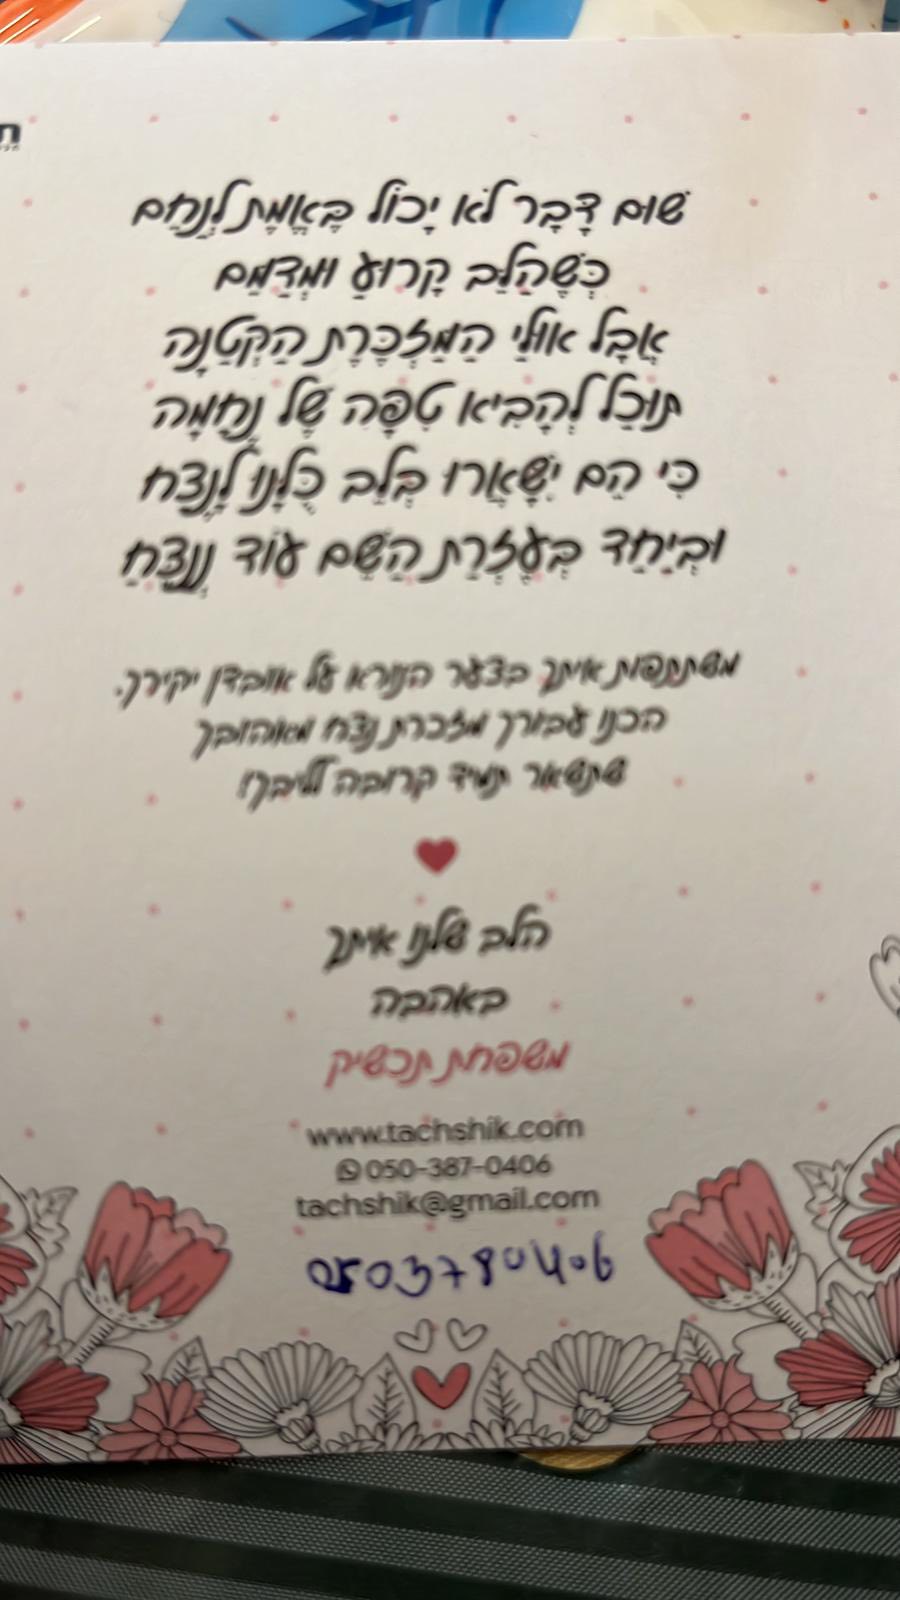 שׁוּם דָּבָר לֹא יָכוֹל בֶּאֱמֶת לְנַחֵם
כְּשֶׁהַלֵּב קָרוּעַ וּמְדַמֵּם
אֲבָל אוּלַי הַמַּזְכֶּרֶת הַקְּטַנָּה
תּוּכַל לְהָבִיא טִפָּה שֶׁל נֶחָמָה
כִּי הֵם יִשָּׁאֲרוּ בְּלֵב כֻּלָּנוּ לָנֶצַח
וּבְיַחַד בְּעֶזְרַת הַשֵּׁם עוֹד נְנַצֵּחַ
משתתפות איתך בצער הנורא על אובדן יקירך.
הכנו עבורך מזכרת נצח מאהובך
שתשאר תמיד קרובה לליבך!
הלב שלנו איתך
באהבה
משפחת תכשיק
www.tachshik.com
050-387-0406
tachshik@gmail.com